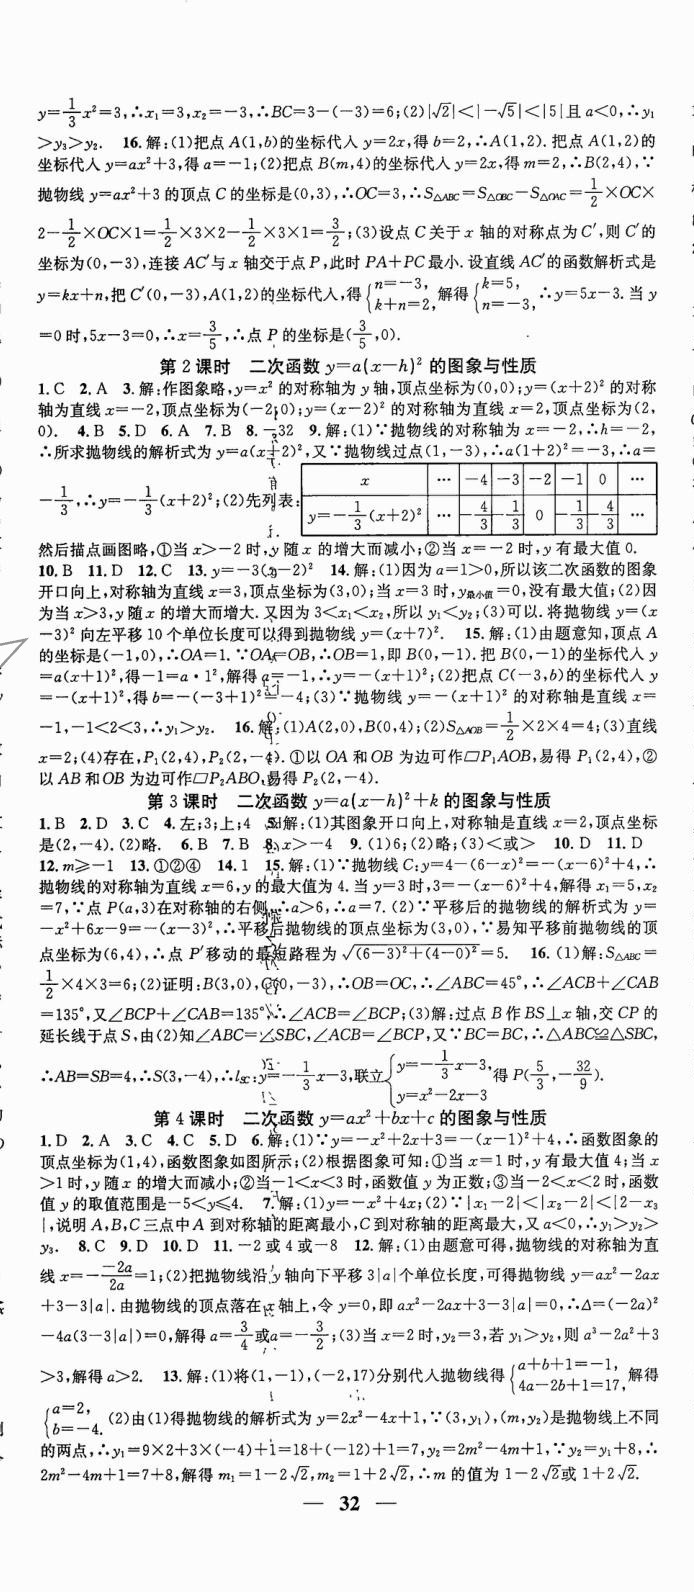 y=1/3x²=3,∴x₁=3,x₂=-3,∴BC=3-(-3)=6;(2)|√2|<|-√5|<|5|且 a<0,∴y₁
>y₃>y₂. 16.解:(1)把点A(1,b)的坐标代入 y=2x,得 b=2,∴A(1,2).把点A(1,2)的
坐标代入 y=ax²+3,得 a=-1;(2)把点B(m,4)的坐标代入 y=2x,得 m=2,∴B(2,4),∵
抛物线 y=ax²+3 的顶点 C 的坐标是(0,3),∴OC=3,∴S△ABC=S△OBC-S△OAC=1/2×OC×
2-1/2×OC×1=1/2×3×2-1/2×3×1=3/2;(3)设点C关于 x 轴的对称点为C′,则C′的
坐标为(0,-3),连接 AC′与 x 轴交于点 P,此时 PA+PC最小.设直线 AC′的函数解析式是
y=kx+n,把C′(0,-3),A(1,2)的坐标代入,得{n=-3, k+n=2, 解得{k=5, n=-3, ∴y=5x-3.当 y
=0时,5x-3=0,∴x=3/5,∴点 P 的坐标是(3/5,0).
第2课时 二次函数 y=a(x-h)² 的图象与性质
1.C 2.A 3.解:作图象略,y=x² 的对称轴为 y 轴,顶点坐标为(0,0);y=(x+2)² 的对称
轴为直线 x=-2,顶点坐标为(-2,0);y=(x-2)² 的对称轴为直线 x=2,顶点坐标为(2,
0). 4.B 5.D 6.A 7.B 8.-32 9.解:(1)∵抛物线的对称轴为 x=-2,∴h=-2,
∴所求抛物线的解析式为 y=a(x+2)²,又∵抛物线过点(1,-3),∴a(1+2)²=-3,∴a=
-1/3,∴y=-1/3(x+2)²;(2)先列表:
x … -4 -3 -2 -1 0 …
y=-1/3(x+2)² … -4/3 -1/3 0 -1/3 -4/3 …
然后描点画图略,①当 x>-2 时,y 随 x 的增大而减小;②当 x=-2 时,y 有最大值 0.
10.B 11.D 12.C 13.y=-3(x-2)² 14.解:(1)因为 a=1>0,所以该二次函数的图象
开口向上,对称轴为直线 x=3,顶点坐标为(3,0);当 x=3 时,y最小值=0,没有最大值;(2)因
为当 x>3,y 随 x 的增大而增大.又因为 3<x₁<x₂,所以 y₁<y₂;(3)可以.将抛物线 y=(x
-3)² 向左平移 10 个单位长度可以得到抛物线 y=(x+7)². 15.解:(1)由题意知,顶点 A
的坐标是(-1,0),∴OA=1.∵OA=OB,∴OB=1,即 B(0,-1).把 B(0,-1)的坐标代入 y
=a(x+1)²,得-1=a·1²,解得 a=-1,∴y=-(x+1)²;(2)把点 C(-3,b)的坐标代入 y
=-(x+1)²,得 b=-(-3+1)²=-4;(3)∵抛物线 y=-(x+1)² 的对称轴是直线 x=
-1,-1<2<3,∴y₁>y₂. 16.解:(1)A(2,0),B(0,4);(2)S△AOB=1/2×2×4=4;(3)直线
x=2;(4)存在,P₁(2,4),P₂(2,-4).①以 OA 和 OB 为边可作▱P₁AOB,易得 P₁(2,4),②
以 AB 和 OB 为边可作▱P₂ABO,易得 P₂(2,-4).
第3课时 二次函数 y=a(x-h)²+k 的图象与性质
1.B 2.D 3.C 4.左;3;上;4 5.解:(1)其图象开口向上,对称轴是直线 x=2,顶点坐标
是(2,-4).(2)略. 6.B 7.B 8.x>-4 9.(1)6;(2)略;(3)<或> 10.D 11.D
12.m≥-1 13.①②④ 14.1 15.解:(1)∵抛物线C:y=4-(6-x)²=-(x-6)²+4,∴
抛物线的对称轴为直线 x=6,y 的最大值为 4.当 y=3时,3=-(x-6)²+4,解得 x₁=5,x₂
=7,∵点 P(a,3)在对称轴的右侧,∴a>6,∴a=7.(2)∵平移后的抛物线的解析式为 y=
-x²+6x-9=-(x-3)²,∴平移后抛物线的顶点坐标为(3,0),∵易知平移前抛物线的顶
点坐标为(6,4),∴点 P′移动的最短路程为√((6-3)²+(4-0)²)=5. 16.(1)解:S△ABC=
1/2×4×3=6;(2)证明:B(3,0),C(0,-3),∴OB=OC,∴∠ABC=45°,∴∠ACB+∠CAB
=135°,又∠BCP+∠CAB=135°,∴∠ACB=∠BCP;(3)解:过点 B 作 BS⊥x 轴,交 CP 的
延长线于点 S,由(2)知∠ABC=∠SBC,∠ACB=∠BCP,又∵BC=BC,∴△ABC≌△SBC,
∴AB=SB=4,∴S(3,-4),∴lSC:y=-1/3x-3,联立{y=-1/3x-3, y=x²-2x-3 得 P(5/3,-32/9).
第4课时 二次函数 y=ax²+bx+c 的图象与性质
1.D 2.A 3.C 4.C 5.D 6.解:(1)∵y=-x²+2x+3=-(x-1)²+4,∴函数图象的
顶点坐标为(1,4),函数图象如图所示;(2)根据图象可知:①当 x=1时,y 有最大值 4;当 x
>1时,y 随 x 的增大而减小;②当-1<x<3 时,函数值 y 为正数;③当-2<x<2 时,函数
值 y 的取值范围是-5<y≤4. 7.解:(1)y=-x²+4x;(2)∵|x₁-2|<|x₂-2|<|2-x₃
|,说明 A,B,C三点中 A 到对称轴的距离最小,C到对称轴的距离最大,又 a<0,∴y₁>y₂>
y₃. 8.C 9.D 10.D 11.-2或4或-8 12.解:(1)由题意可得,抛物线的对称轴为直
线 x=-(-2a)/2a=1;(2)把抛物线沿 y 轴向下平移 3|a|个单位长度,可得抛物线 y=ax²-2ax
+3-3|a|.由抛物线的顶点落在 x 轴上,令 y=0,即 ax²-2ax+3-3|a|=0,∴Δ=(-2a)²
-4a(3-3|a|)=0,解得 a=3/4或a=-3/2;(3)当 x=2时,y₂=3,若 y₁>y₂,则 a³-2a²+3
>3,解得 a>2. 13.解:(1)将(1,-1),(-2,17)分别代入抛物线得{a+b+1=-1, 4a-2b+1=17, 解得
{a=2, b=-4. (2)由(1)得抛物线的解析式为 y=2x²-4x+1,∵(3,y₁),(m,y₂)是抛物线上不同
的两点,∴y₁=9×2+3×(-4)+1=18+(-12)+1=7,y₂=2m²-4m+1,∵y₂=y₁+8,∴
2m²-4m+1=7+8,解得 m₁=1-2√2,m₂=1+2√2,∴m 的值为 1-2√2或 1+2√2.
— 32 —